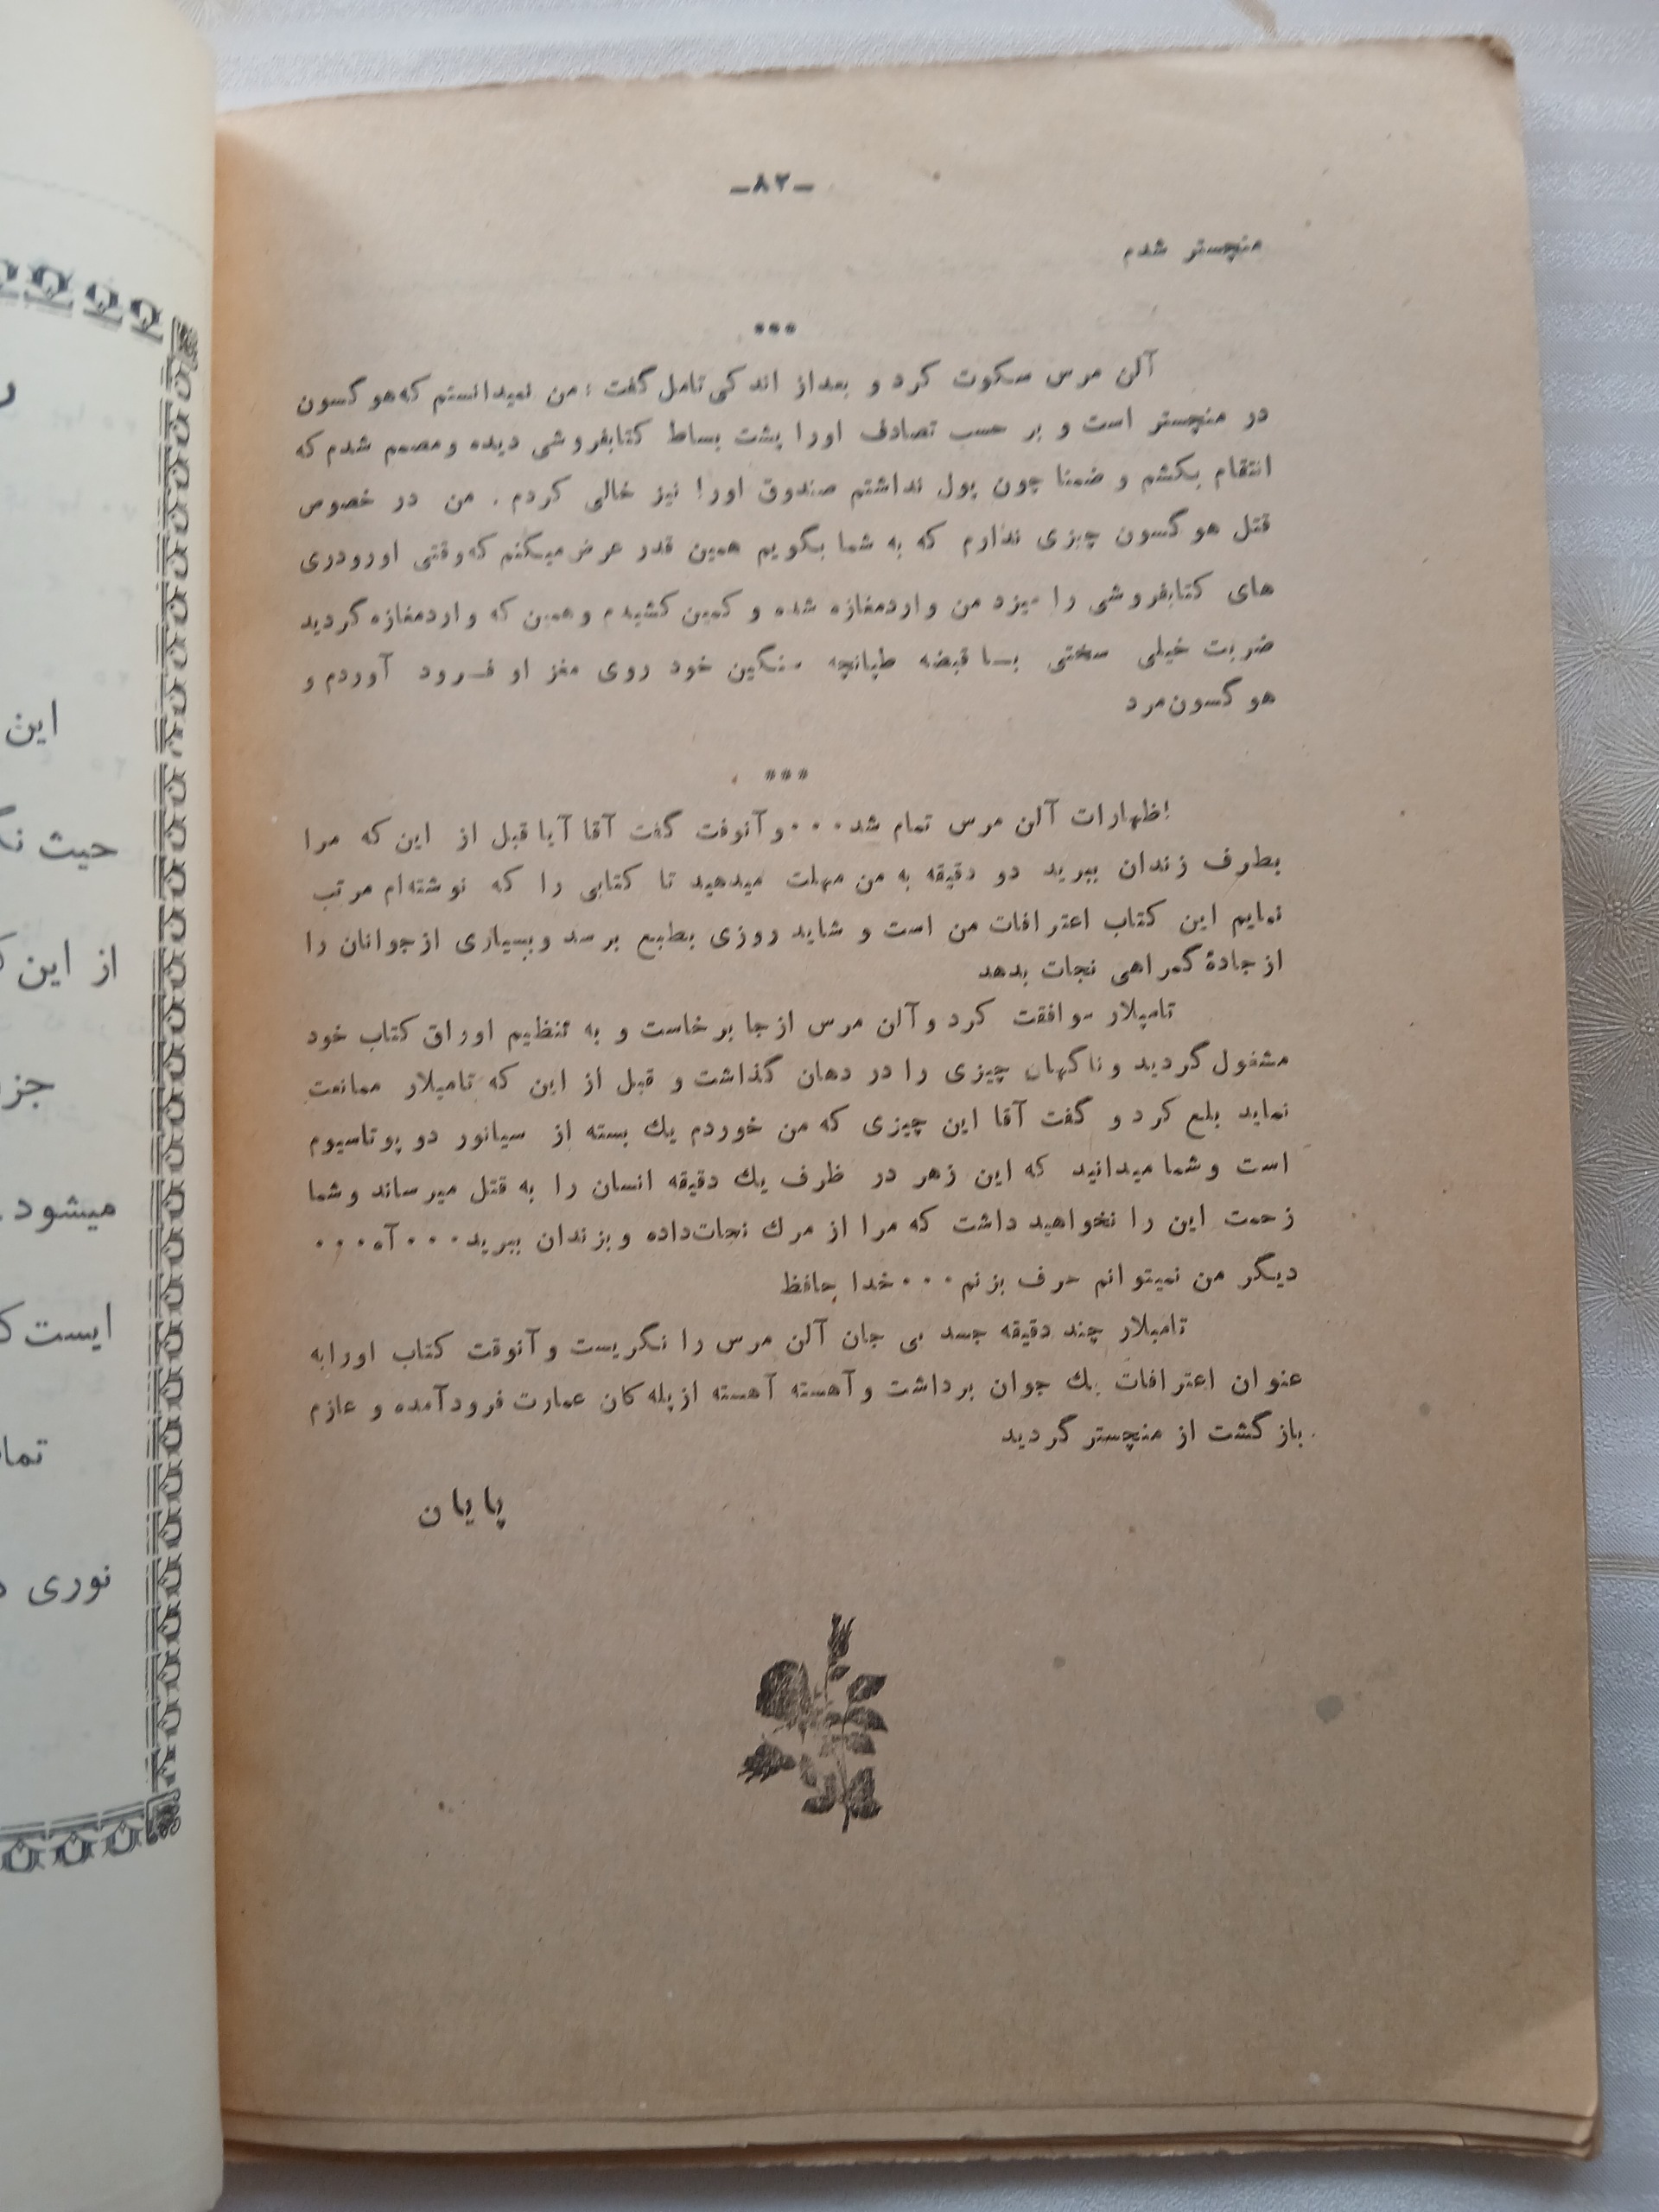 ـ۸۲ـ
منچستر شدم
***
آلن مرس سکوت کرد و بعداز اندکی تامل گفت : من نمیدانستم که هوگسون
در منچستر است و بر حسب تصادف اورا پشت بساط کتابفروشی دیده و مصمم شدم که
انتقام بکشم و ضمنا چون پول نداشتم صندوق اورا نیز خالی کردم . من در خصوص
قتل هوگسون چیزی ندارم که به شما بگویم همین قدر عرض میکنم که وقتی او رودری
های کتابفروشی را میزد من واردمغازه شده و کمین کشیدم و همین که واردمغازه گردید
ضربت خیلی سختی بـا قبضه طپانچه سنگین خود روی مغز او فـرود آوردم و
هوگسون مرد
***
اظهارات آلن مرس تمام شد۰۰۰ و آنوقت گفت آقا آیا قبل از این که مرا
بطرف زندان ببرید دو دقیقه به من مهلت میدهید تا کتابی را که نوشته‌ام مرتب
نمایم این کتاب اعترافات من است و شاید روزی بطبع برسد و بسیاری ازجوانان را
ازجادهٔ گمراهی نجات بدهد
تامپلار موافقت کرد و آلن مرس ازجا برخاست و به تنظیم اوراق کتاب خود
مشغول گردید و ناگهان چیزی را در دهان گذاشت و قبل از این که تامپلار ممانعت
نماید بلع کرد و گفت آقا این چیزی که من خوردم یك بسته از سیانور دو پوتاسیوم
است و شما میدانید که این زهر در ظرف یك دقیقه انسان را به قتل میرساند و شما
زحمت این را نخواهید داشت که مرا از مرك نجات‌داده و بزندان ببرید۰۰۰ آه۰۰۰۰
دیگر من نمیتوانم حرف بزنم ۰۰۰ خدا حافظ
تامپلار چند دقیقه جسد بی جان آلن مرس را نگریست و آنوقت کتاب اورابه
عنوان اعترافات یك جوان برداشت و آهسته آهسته ازپله‌کان عمارت فرودآمده و عازم
بازگشت از منچستر گردید
پایان
این
حیث
از این
جز
میشود
ایست
تما
نوری